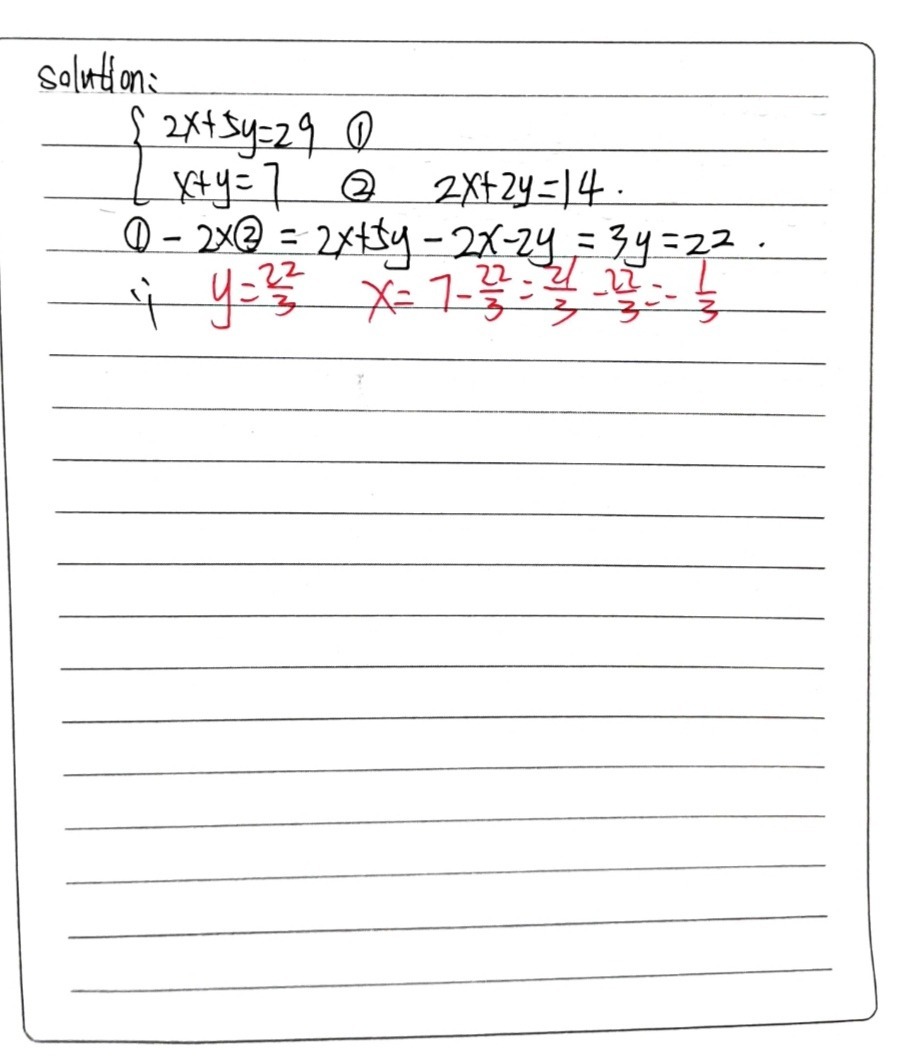 Solution:
{ 2x+5y=29 ①
x+y=7 ② 2x+2y=14.
① - 2x② = 2x+5y - 2x-2y = 3y=22.
∴ y=22/3 x= 7-22/3=21/3-22/3=-1/3